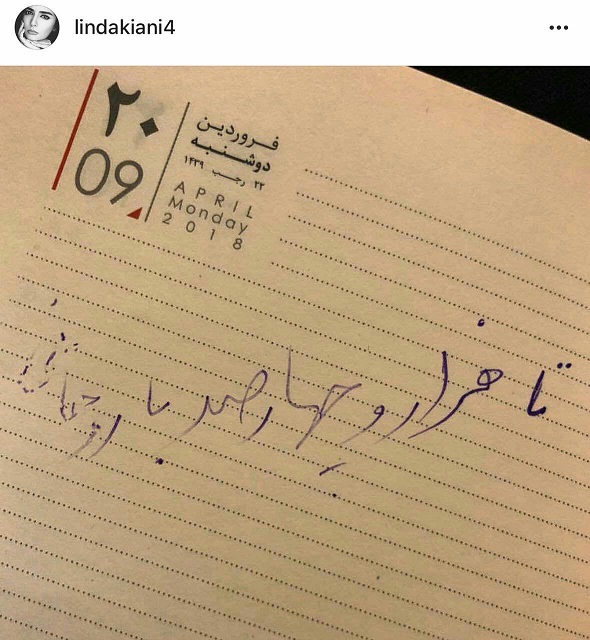 lindakiani4
۲۰
09
فروردین
دوشنبه
۲۲ رجب ۱۴۳۹
APRIL
Monday
2018
تا هزار و چهارصد با